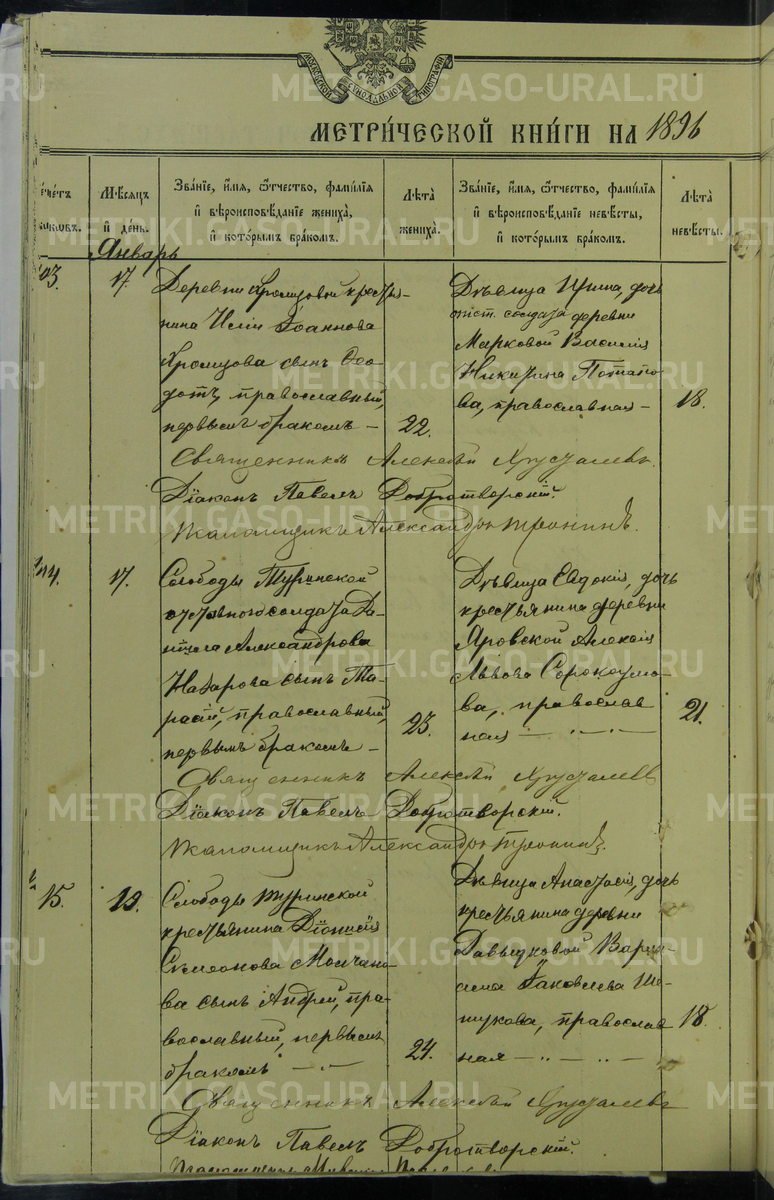 МОСКОВСКОЙ СѴНОДАЛЬНОЙ ТИПОГРАФІИ
МЕТРИ́ЧЕСКОЙ КНИ́ГИ НА 1896
Мѣсяцъ
и҆ день.
Январь
Зва́нїе, и҆́мѧ, ѻ҆́тчество, фами́лїѧ
и҆ вѣроисповѣ́данїе жениха̀,
и҆ кото́рымъ бра́комъ.
Лѣта̀
жениха̀.
Зва́нїе, и҆́мѧ, ѻ҆́тчество, фами́лїѧ
и҆ вѣроисповѣ́данїе невѣ́сты,
и҆ кото́рымъ бра́комъ.
Лѣта̀
невѣ́сты.
17
Деревни Хромцовой крестья-
нина Иліи Іоаннова
Хромцова сынъ Ѳео-
дотъ, православный,
первымъ бракомъ –
22.
Дѣвица Ирина, дочь
отст. солдата деревни
Марковой Василія
Никитина Потапо-
ва, православная –
18.
Священникъ Алексѣй Хрусталевъ.
Діаконъ Павелъ Добротворскій.
Псаломщикъ Александръ Тронинъ.
17.
Слободы Туринской
отставного солдата Да-
ніила Александрова
Назарова сынъ Та-
расій, православный,
первымъ бракомъ –
23.
Дѣвица Евдокія, дочь
крестьянина деревни
Яровской Алексія
Львова Сорокоумо-
ва, православ
ная – „ – „ –
21.
Священникъ Алексѣй Хрусталевъ
Діаконъ Павелъ Добротворскій.
Псаломщикъ Александръ Тронинъ.
15.
Слободы Туринской
крестьянина Діонисія
Симеонова Молчано-
ва сынъ Андрей, пра-
вославный, первымъ
бракомъ – „ –
24.
Дѣвица Анастасія, дочь
крестьянина деревни
Давыдковой Варла-
ама Іаковлева
православ
ная – „ – „ –
18.
Священникъ Алексѣй Хрусталевъ
Діаконъ Павелъ Добротворскій.
METRIKI.GASO-URAL.RU